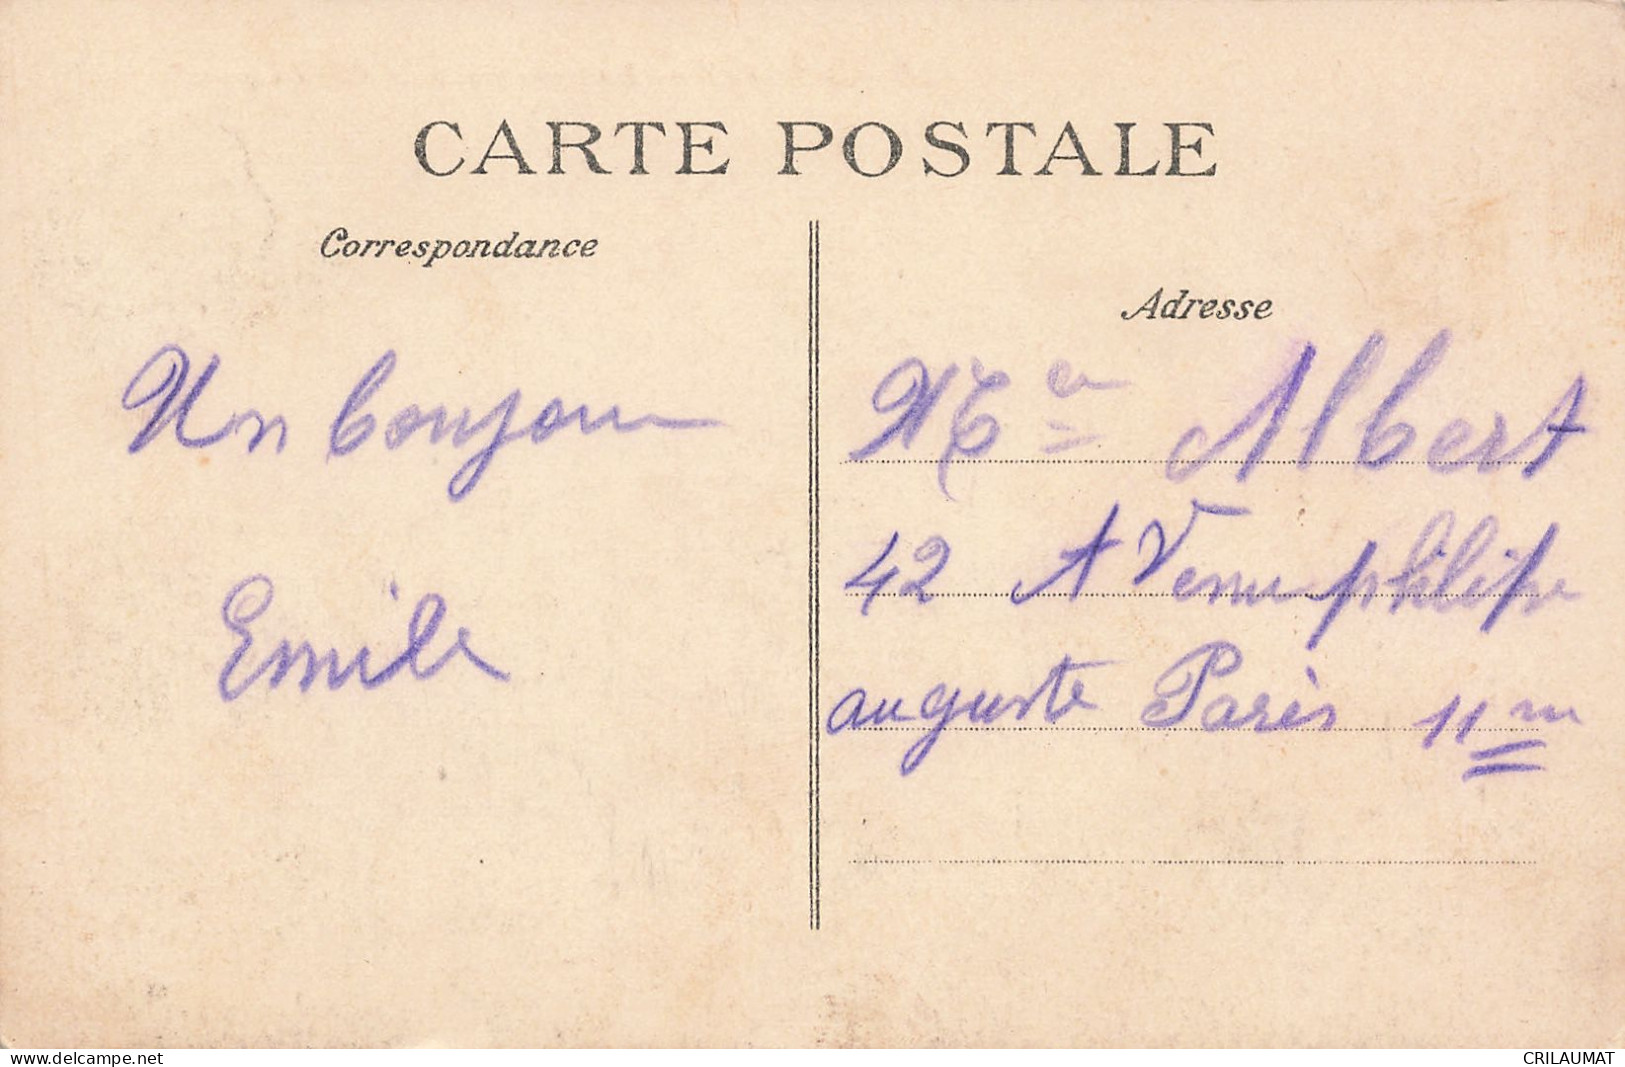 CARTE POSTALE
Correspondance
Un bonjour
Emile
Adresse
Albert
42 A Venu philipe
auguste Paris 11 m
www.delcampe.net
CRILAUMAT